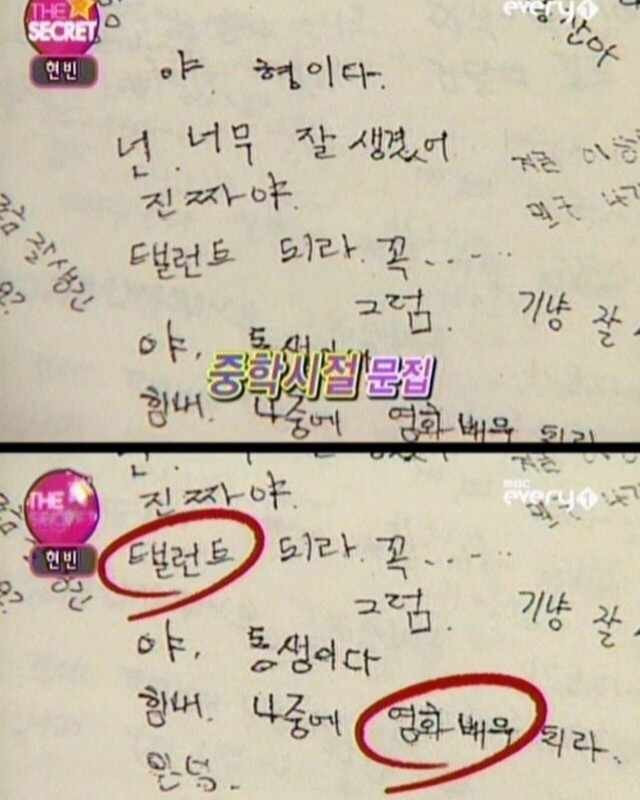 THE
SECRET
현빈
every1
야. 형이다.
넌. 너무 잘 생겼어
진짜야.
탤런트 되라. 꼭.....
그럼.
기냥 잘
잘생긴
야,
중학시절 문집
힘내. 나중에 영화배우 되라
THE
SECRET
현빈
mbc
every1
진짜야.
탤런트 되라. 꼭.....
그럼.
기냥 잘
야, 동생이다
힘내. 나중에 영화배우 되라.